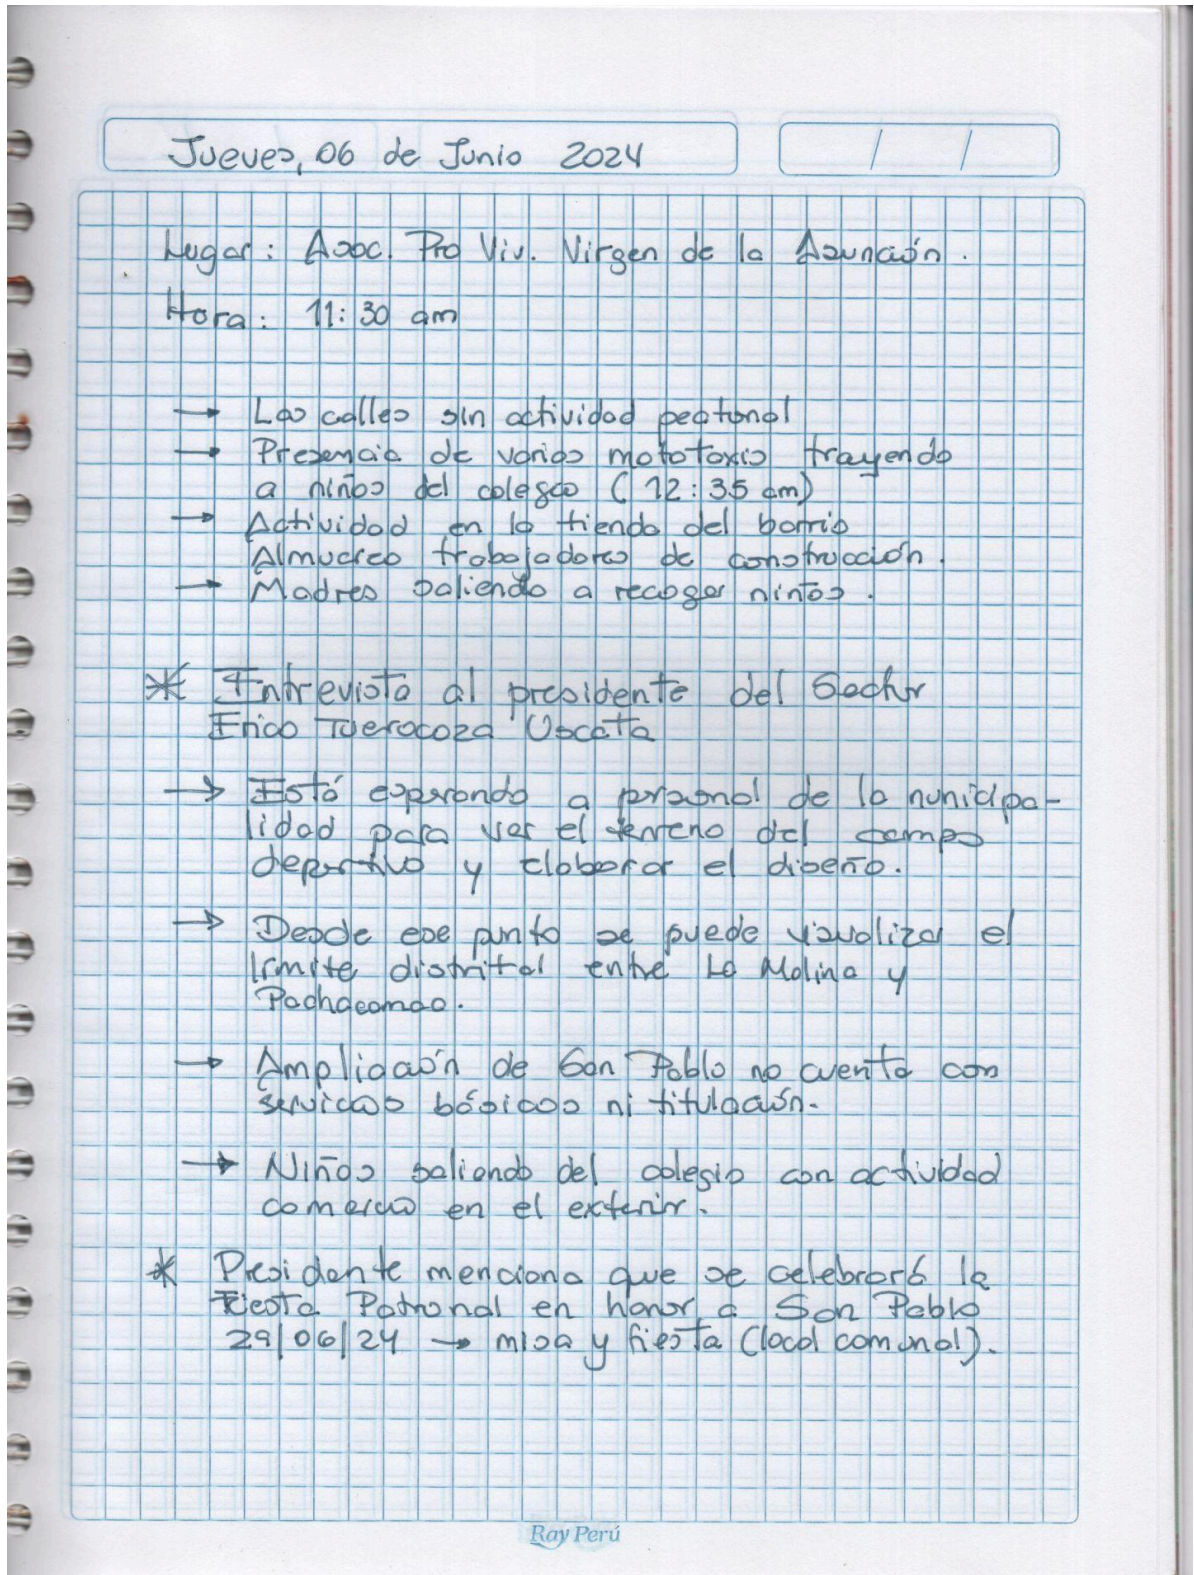 Jueves, 06 de Junio 2024
/ /
Lugar: Asoc. Pro Viv. Virgen de la Asunción.
Hora: 11:30 am
→ Las calles sin actividad peatonal
→ Presencia de varios mototaxis trayendo
a niños del colegio (12:35 am)
→ Actividad en la tienda del barrio
Almuerzo trabajadores de construcción.
→ Madres saliendo a recoger niños.
* Entrevista al presidente del Sector
→ Está esperando a personal de la municipa-
lidad para ver el terreno del campo
deportivo y elaborar el diseño.
→ Desde ese punto se puede visualizar el
límite distrital entre La Molina y
Pachacamac.
→ Ampliación de San Pablo no cuenta con
servicios básicos ni titulación.
→ Niños saliendo del colegio con actividad
comercio en el exterior.
* Presidente menciona que se celebrará la
Fiesta Patronal en honor a San Pablo
29/06/24 → misa y fiesta (local comunal).
Ray Perú